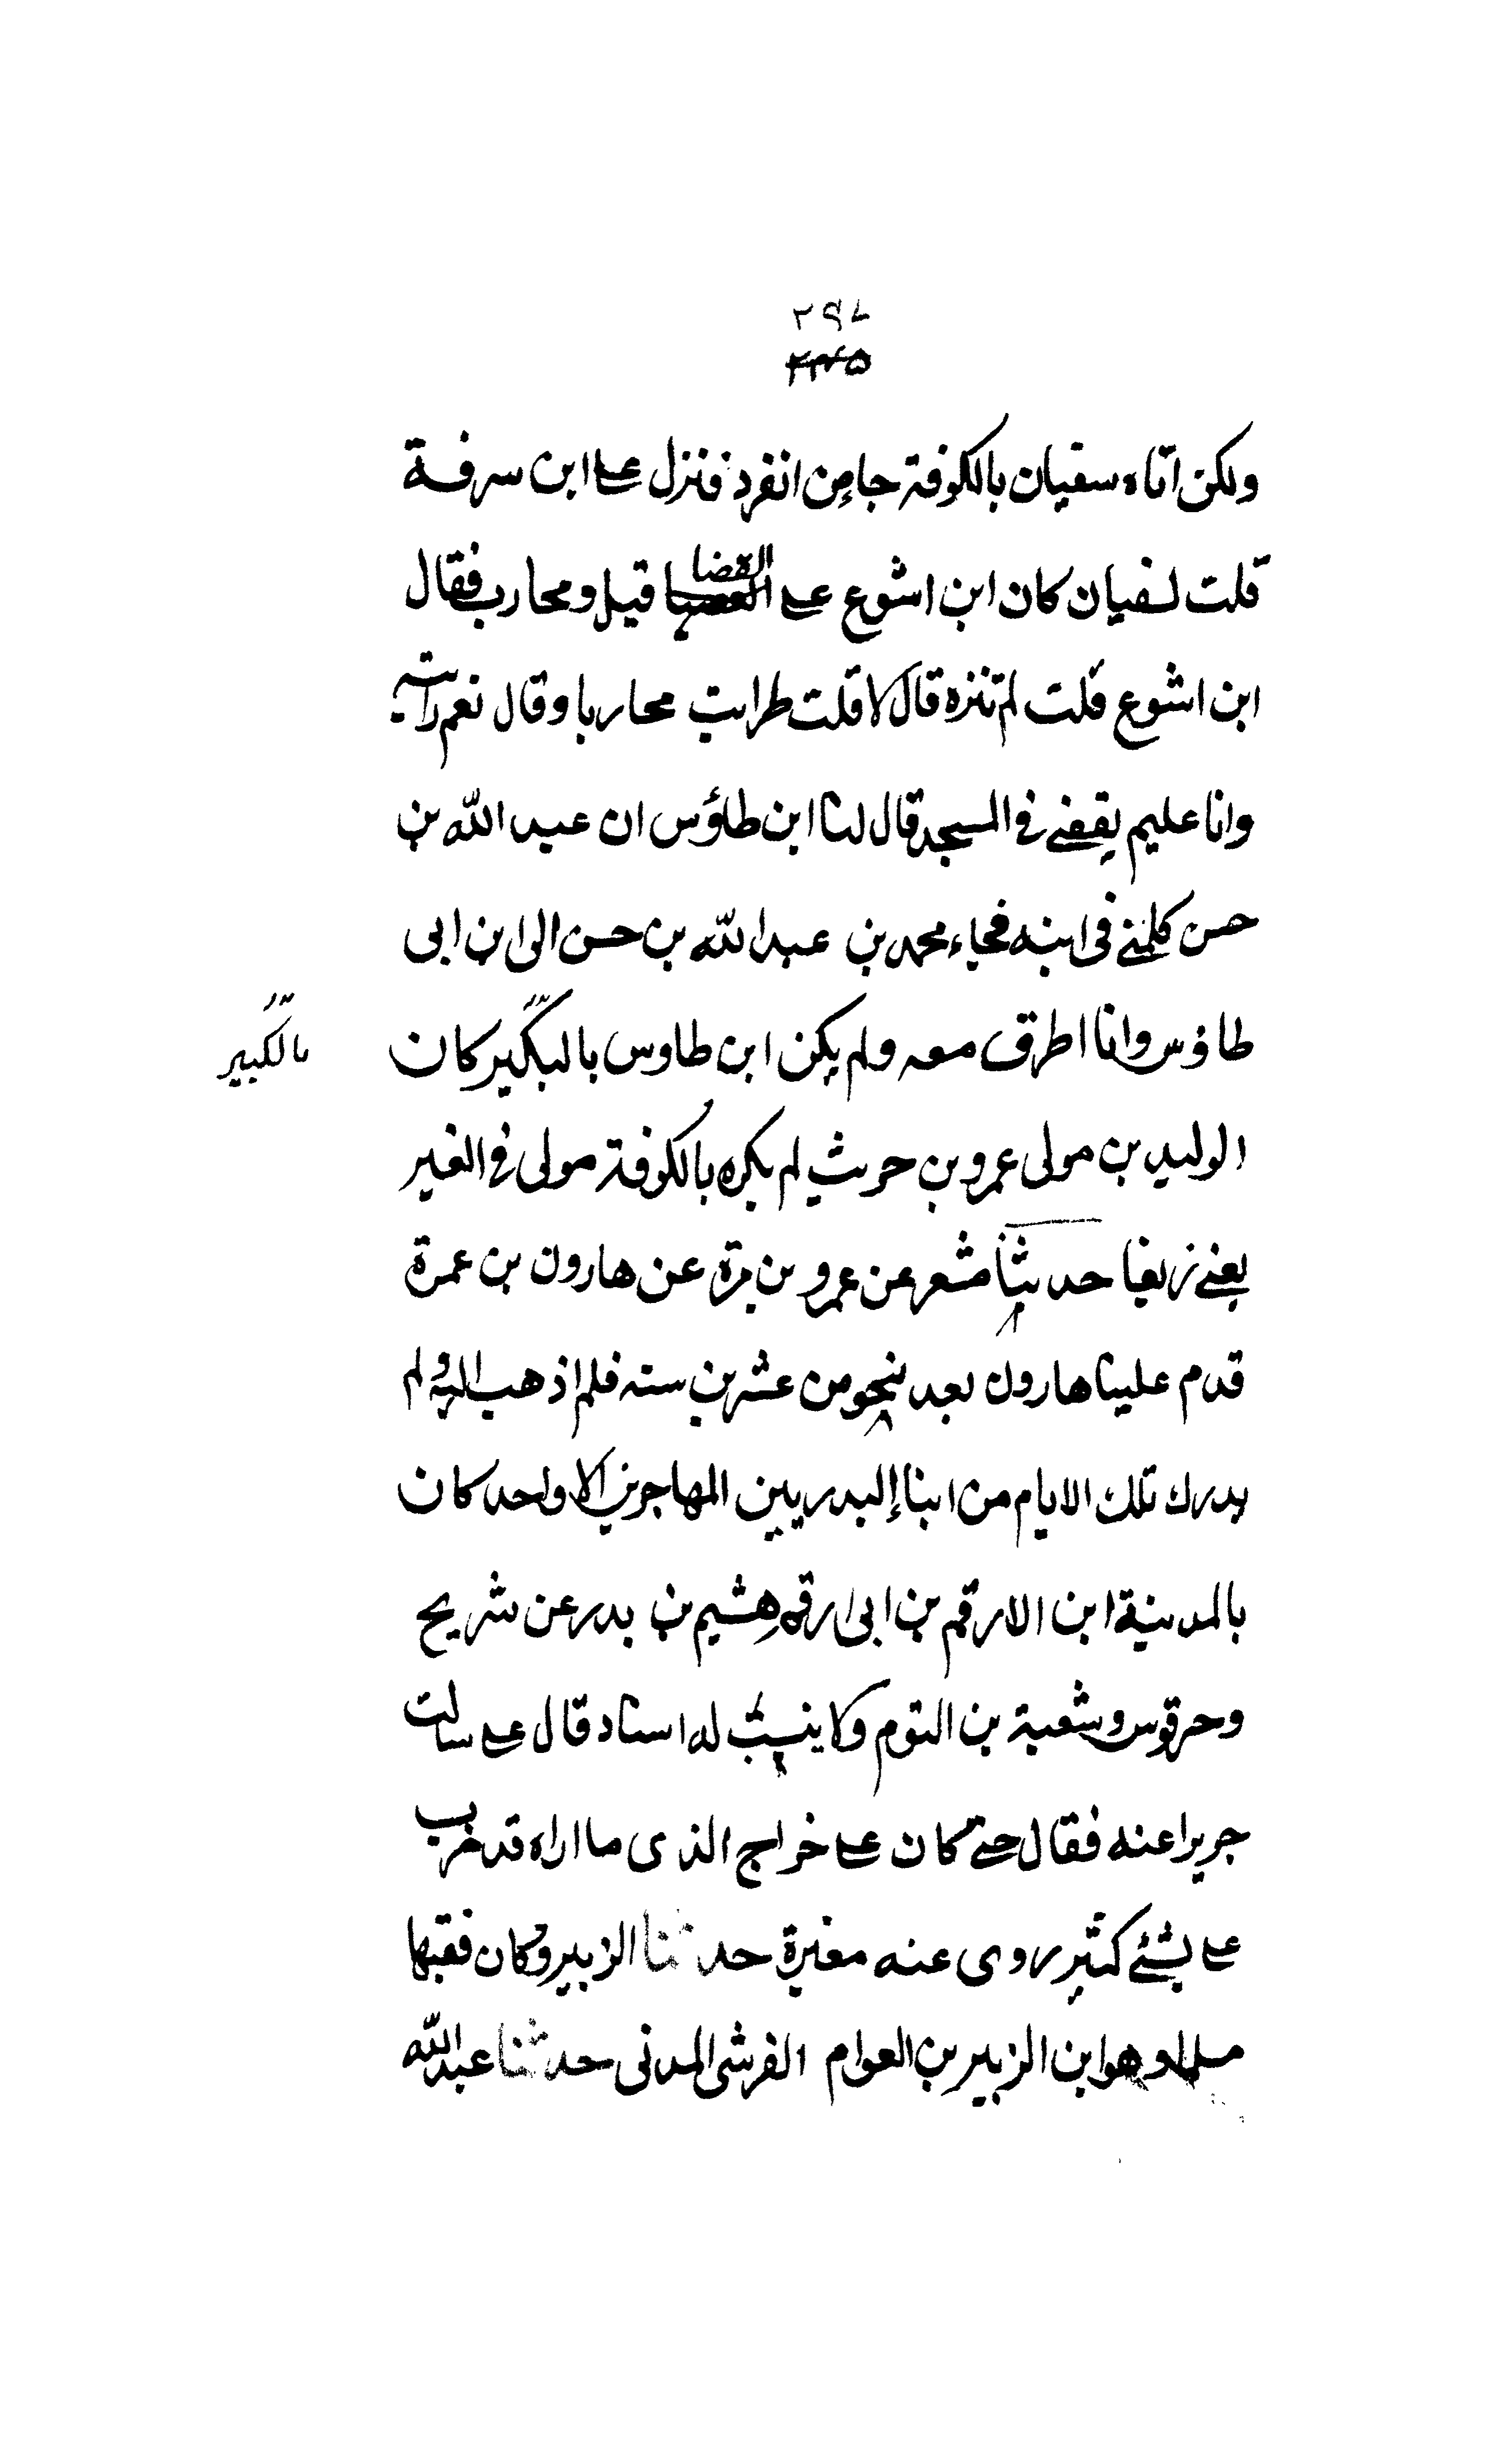 ٢٩٧
٢٣٤٥
ولكن اتاه سفيان بالكوفة جامن انفرد فنزل على ابن سرفة
قلت لسفيان كان ابن اشوع على القضا قيل ومحارب فقال
ابن اشوع قلت لم تنزه قال لا قلت طرايت محاربا وقال نعم رايته
وانا عليم يقضي في المسجد قال لنا ابن طاؤس ان عبد الله بن
حسن كلمني في ابنه فجاء محمد بن عبد الله بن حسن الى ابن ابى
طاؤس وانا اطرق معه ولم يكن ابن طاوس بالبكير كان
بالكبير
الوليد بن مولى عمرو بن حريث لم يكره بالكوفة مولى في الغير
يعني زيغا حديثنا مشعر عن عمرو بن مرة عن هارون بن عمرة
قدم علينا هارون بعد نحو من عشرين سنه فلم اذهب اليه ولم
يدرك تلك الايام من ابنا البدريين المهاجرين الا واحد كان
بالمدينية ابن الارقم بن ابى ارقم هشيم بن بدر عن شريح
وحرقوس وشعبة بن التوم ولا ينسب له اسناد قال على سالت
جريرا عنه فقال حتى كان على خراج الذى ما اراه قد خرب
على شئ كثير روى عنه مغيرة حدثنا الزبير وكان فقيها
مسلما وهو ابن الزبير بن العوام القرشى المدنى حدثنا عبد الله